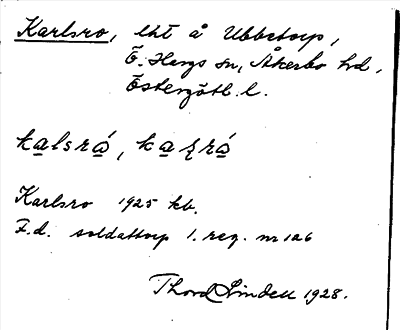 Karlsro, lht å Ubbetorp,
Ö. Hargs sn, Åkerbo hd,
Östergötl. l.
kalsró, kaʂró
Karlsro 1925 kb.
F.d. soldattorp 1. reg. nr 126
Thord Lindell 1928.